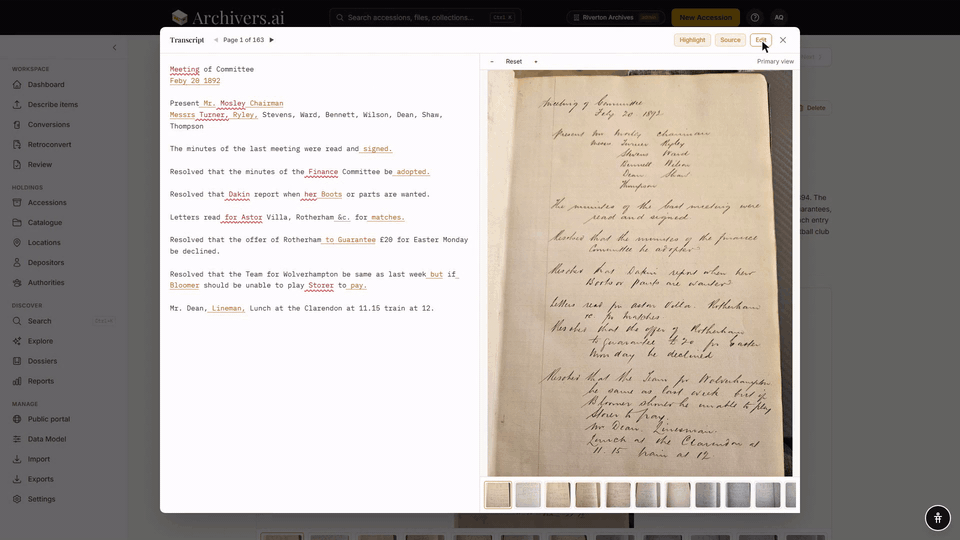 Archivers.ai
Search accessions, files, collections...
Ctrl K
Riverton Archives
New Accession
AQ
WORKSPACE
Dashboard
Describe items
Conversions
Retroconvert
Review
HOLDINGS
Accessions
Catalogue
Locations
Depositors
Authorities
DISCOVER
Search
Explore
Dossiers
Reports
MANAGE
Public portal
Data Model
Import
Exports
Settings
Transcript
Page 1 of 163
Highlight
Source
Edit
Meeting of Committee
Feby 20 1892
Present Mr. Mosley Chairman
Messrs Turner, Ryley, Stevens, Ward, Bennett, Wilson, Dean, Shaw,
Thompson
The minutes of the last meeting were read and signed.
Resolved that the minutes of the Finance Committee be adopted.
Resolved that Dakin report when her Boots or parts are wanted.
Letters read for Astor Villa, Rotherham &c. for matches.
Resolved that the offer of Rotherham to Guarantee £20 for Easter Monday
be declined.
Resolved that the Team for Wolverhampton be same as last week but if
Bloomer should be unable to play Storer to pay.
Mr. Dean, Lineman, Lunch at the Clarendon at 11.15 train at 12.
-
Reset
+
Primary view
Meeting of Committee
Feby 20. 1892.
Present Mr Mosley Chairman
Messrs Turner Ryley
Stevens Ward
Bennett Wilson
Dean Shaw
Thompson
The minutes of the last meeting were
read and signed
Resolved that the minutes of the finance
Committee be adopted
Resolved that Dakin report when new
Boots or parts are wanted
Letters read for Aston Villa. Rotherham
&c for matches
Resolved that the offer of Rotherham
to guarantee £20 for Easter
Monday be declined
Resolved that the Team for Wolverhampton
be same as last week but if
Bloomer should be unable to play
Storer to play.
Mr Dean. Linesman.
Lunch at the Clarendon at
11.15 train at 12
Delete
94. The
uarantees,
ch entry
otball club